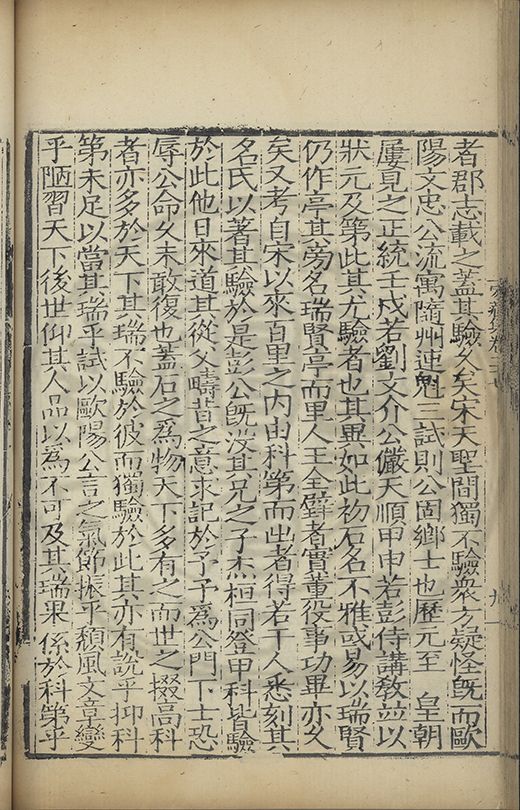 者郡志載之蓋其驗久矣宋天聖間獨不驗衆方疑怪旣而歐
陽文忠公流寓隨州連魁三試則公固鄉士也歷元至　皇朝
屢見之正統壬戌若劉文介公儼天順甲申若彭侍講教並以
狀元及第此其尤驗者也其異如此初石名不雅或易以瑞賢
仍作亭其旁名瑞賢亭而里人王全璧者實董役事功畢亦久
矣又考自宋以來百里之内由科第而出者得若干人悉刻其
名氏以著其驗於是彭公旣沒其兄之子杰桓同登甲科皆驗
於此他日來道其從父疇昔之意求記於予予爲公門下士恐
辱公命久未敢復也蓋石之爲物天下多有之而世之掇高科
者亦多於天下其瑞不驗於彼而獨驗於此其亦有說乎抑科
第未足以當其瑞乎試以歐陽公言之氣節振乎頹風文章變
乎陋習天下後世仰其人品以爲不可及其瑞果係於科第乎